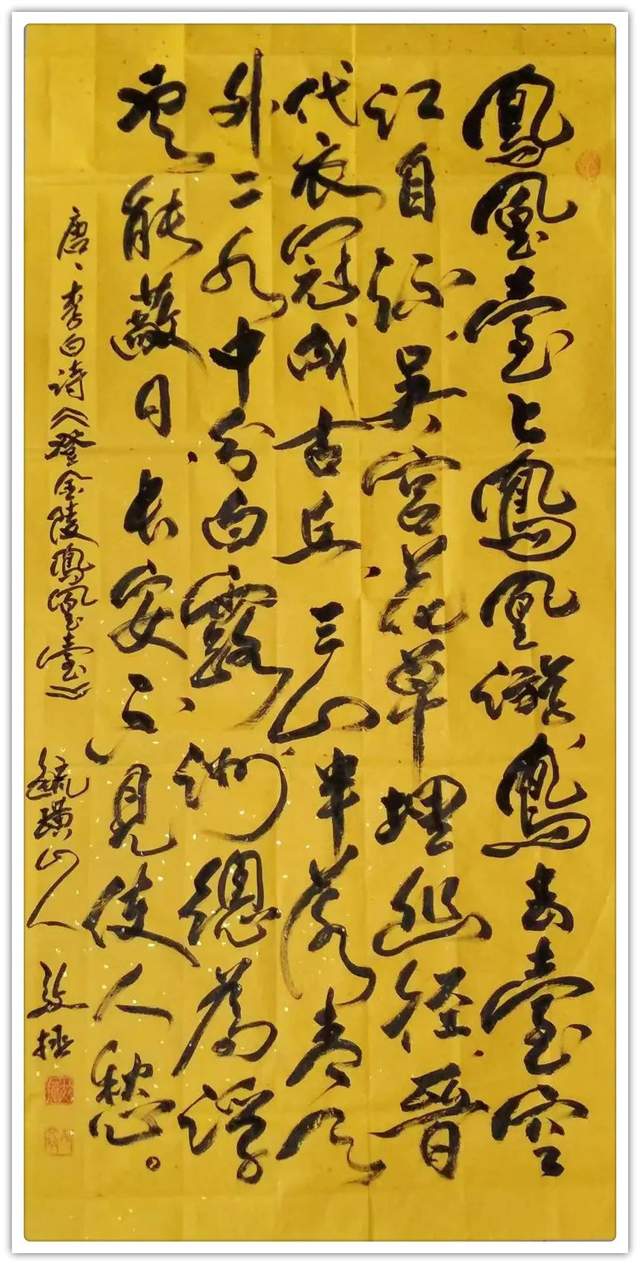 鳳凰臺上鳳凰游、鳳去臺空
江自流、吳宮花草埋幽徑、晉
代衣冠成古丘、三山半落青天
外二水中分白鷺洲總為浮
雲能蔽日、長安不見使人愁。
唐、李白詩《登金陵鳳凰臺》
毓璜山人